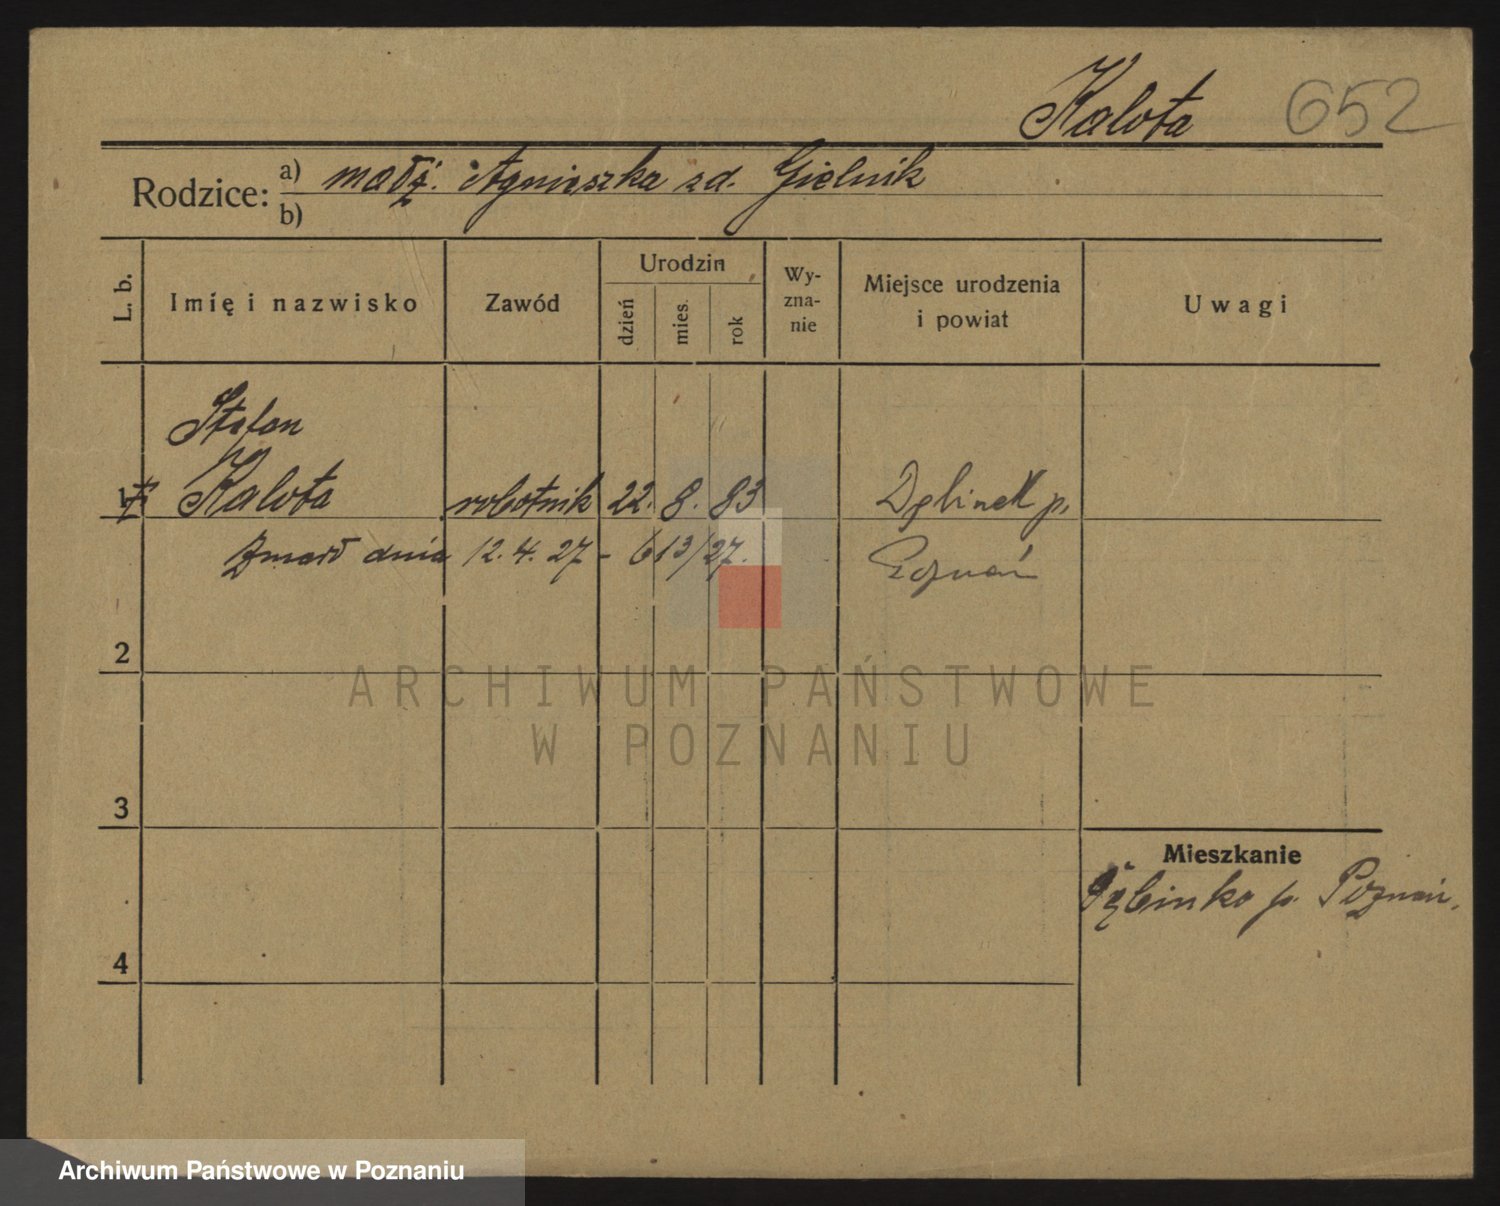 Kalota 652
Rodzice: a) małż. Agnieszka zd. Gielnik
b)
L. b.
Imię i nazwisko
Zawód
Urodzin
dzień
mies.
rok
Wy-
zna-
nie
Miejsce urodzenia
i powiat
Uwagi
Stefan
1 Kalota robotnik 22. 8. 83 Dębinek p.
Zmarł dnia 12.4.27 - 613/27. Poznań
2
ARCHIWUM PAŃSTWOWE
W POZNANIU
3
Mieszkanie
Dębinko p. Poznań.
4
Archiwum Państwowe w Poznaniu